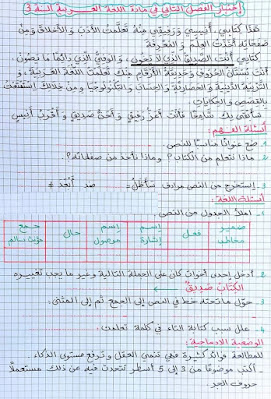 إختبار الفصل الثاني في مادة اللغة العربية السنة 3
هَذَا كِتَابِي، أَنِيسِي وَرَفِيقِي مِنْهُ تَعَلَّمْتُ الأَدَبَ وَالأَخْلَاقَ وَمِنْ
صَفَحَاتِهِ أَخَذْتُ العِلْمَ وَالمَعْرِفَةَ
كِتَابِي أَنْتَ الصَّدِيقُ الَّذِي لَا يَخُونُ، وَالوَفِيُّ الَّذِي دَائِمًا مَا يَصُونُ،
أَنْتَ بُسْتَانُ الحُرُوفِ وَحَدِيقَةُ الأَرْقَامِ مِنْكَ تَعَلَّمْتُ اللُّغَةَ العَرَبِيَّةَ، وَ
التَّرْبِيَةَ الدِّينِيَّةَ وَالحَضَارِيَّةَ وَالحِسَابَ وَالتِّكْنُولُوجْيَا وَمِنْ خِلَالِكَ إِسْتَمْتَعْتُ
بِالقِصَصِ وَالحِكَايَاتِ
سَأَبْقَى بِكَ شَغُوفًا فَأَنْتَ أَعَزُّ رَفِيقٍ وَأَحَنُّ صَدِيقٍ وَأَقْرَبُ أَنِيسٍ
أسئلة الفهم:
1 ضع عنوانًا مناسبًا للنص
2 ماذا نتعلم من الكتاب؟ وماذا نأخذ من صفحاته؟
3 إستخرج من النص مرادف سَأَظَلُّ = ضد أَبْعَدُ ≠
أسئلة اللغة:
1 املأ الجدول من النص
ضمير مخاطب فعل إسم إشارة إسم موصول حال جمع مؤنث سالم
2 أدخل إحدى أخوات كان على الجملة التالية وغير ما يجب تغييره
الكتاب صديقٌ
3 حوّل ما تحته خط في النص إلى الجمع ثم إلى المثنى
4 علل سبب كتابة التاء في كلمة تعلمت
الوضعية الادماجية:
للمطالعة فوائد كثيرة فهي تنمي العقل وترفع مستوى الذكاء
أكتب موضوعًا من 3 إلى 5 أسطر تتحدث فيه عن ذلك مستعملا
حروف الجر